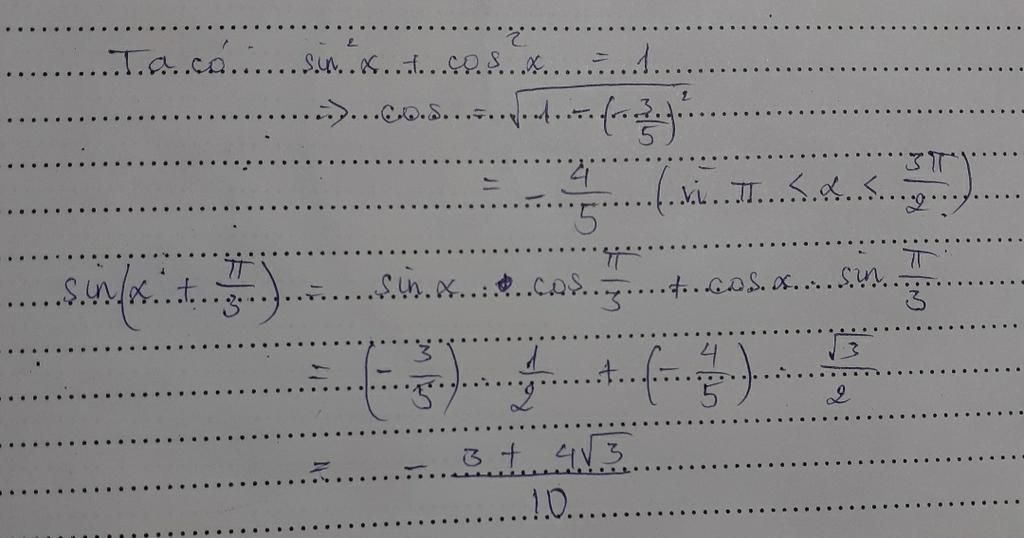 Ta có sin²α + cos²α = 1
=> cos = √(1 - (-3/5)²)
= - 4/5 (vì π < α < 3π/2)
sin(α + π/3) = sin α . cos π/3 + cos α . sin π/3
= (-3/5) . 1/2 + (-4/5) . √3/2
= - (3 + 4√3)/10